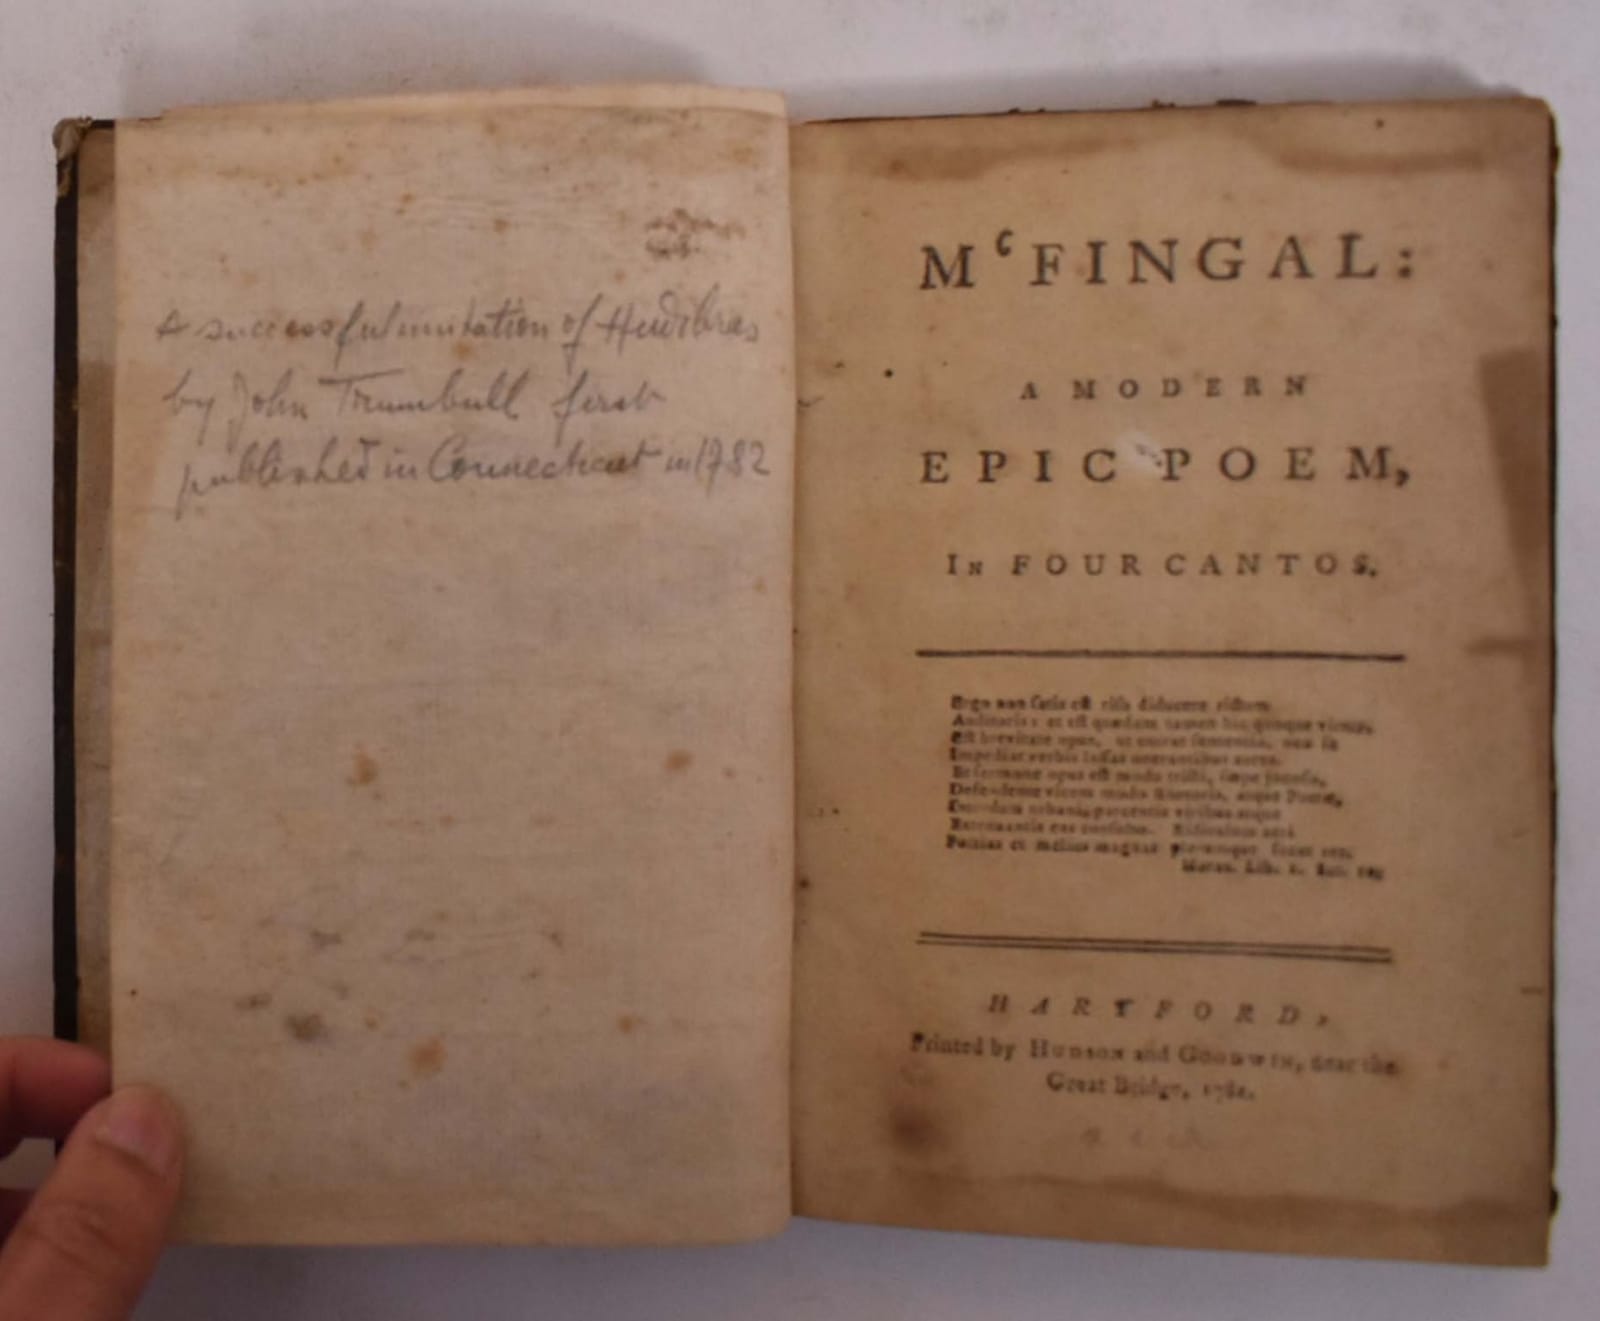 A successful imitation of Hudibras
by John Trumbull first
published in Connecticut in 1782
McFINGAL:
A MODERN
EPIC POEM,
IN FOUR CANTOS.
Ergo non ſatis eſt riſu diducere rictum
Auditoris: et eſt quædam tamen hic quoque virtus.
Eſt brevitate opus, ut currat ſententia, neu ſe
Impediat verbis laſſas onerantibus aures.
Et ſermone opus eſt modo triſti, ſæpe jocoſo,
Defendente vicem modo Rhetoris, atque Poetæ,
Interdum urbani, parcentis viribus atque
Extenuantis eas conſulto. Ridiculum acri
Fortius et melius magnas plerumque ſecat res.
Horat. Lib. 1. Sat. 10.
HARTFORD,
Printed by HUDSON and GOODWIN, near the
Great Bridge, 1782.